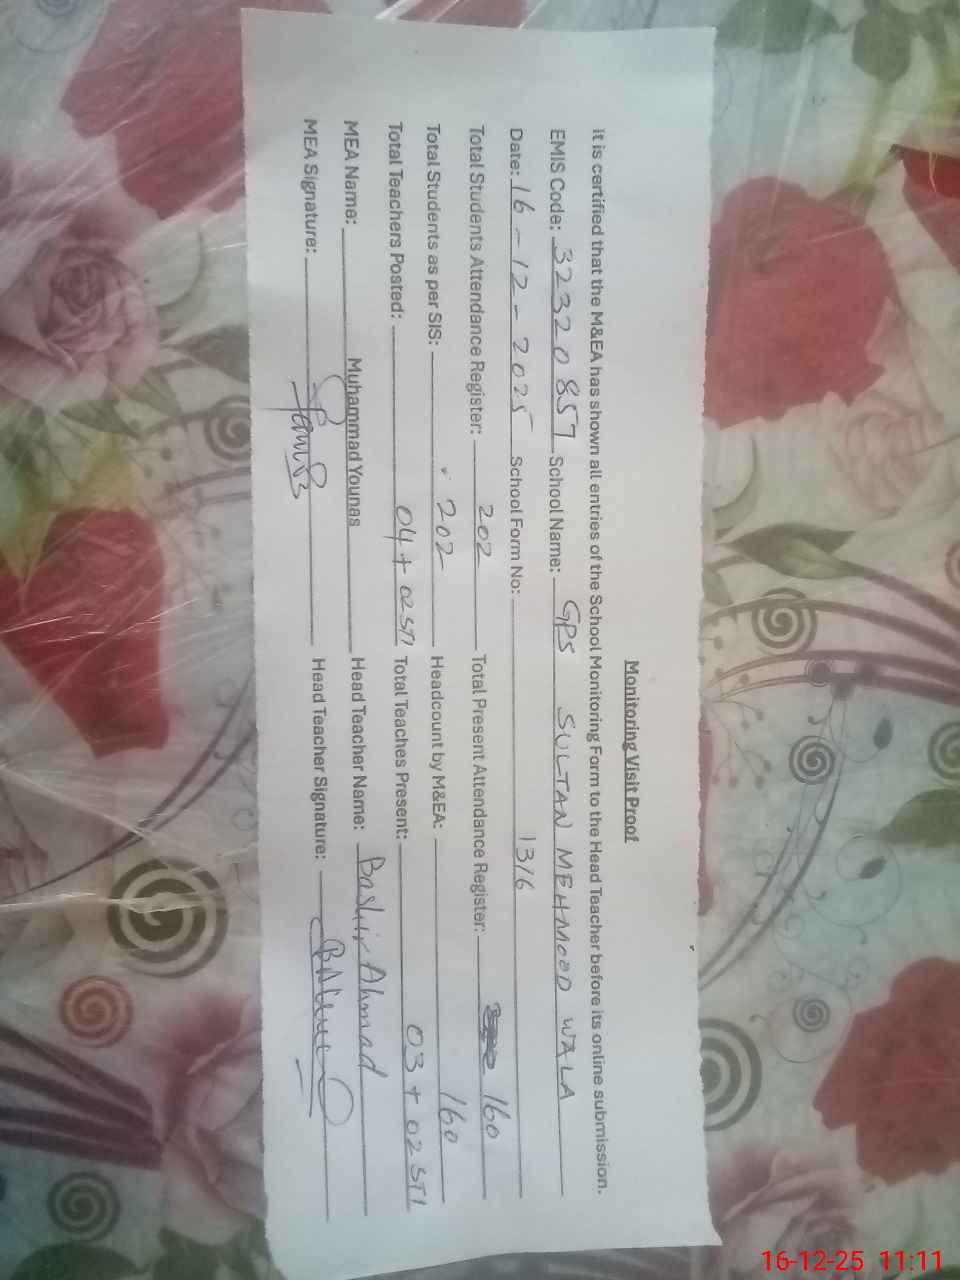 Monitoring Visit Proof
It is certified that the M&EA has shown all entries of the School Monitoring Form to the Head Teacher before its online submission.
EMIS Code: 32320857 School Name: GPS SULTAN MEHMOOD WALA
Date: 16-12-2025 School Form No: 1316
Total Students Attendance Register: 202 Total Present Attendance Register: 160
Total Students as per SIS: 202 Headcount by M&EA: 160
Total Teachers Posted: 04 + 02 STI Total Teaches Present: 03 + 02 STI
MEA Name: Muhammad Younas Head Teacher Name: Bashir Ahmad
MEA Signature: Head Teacher Signature:
16-12-25 11:11